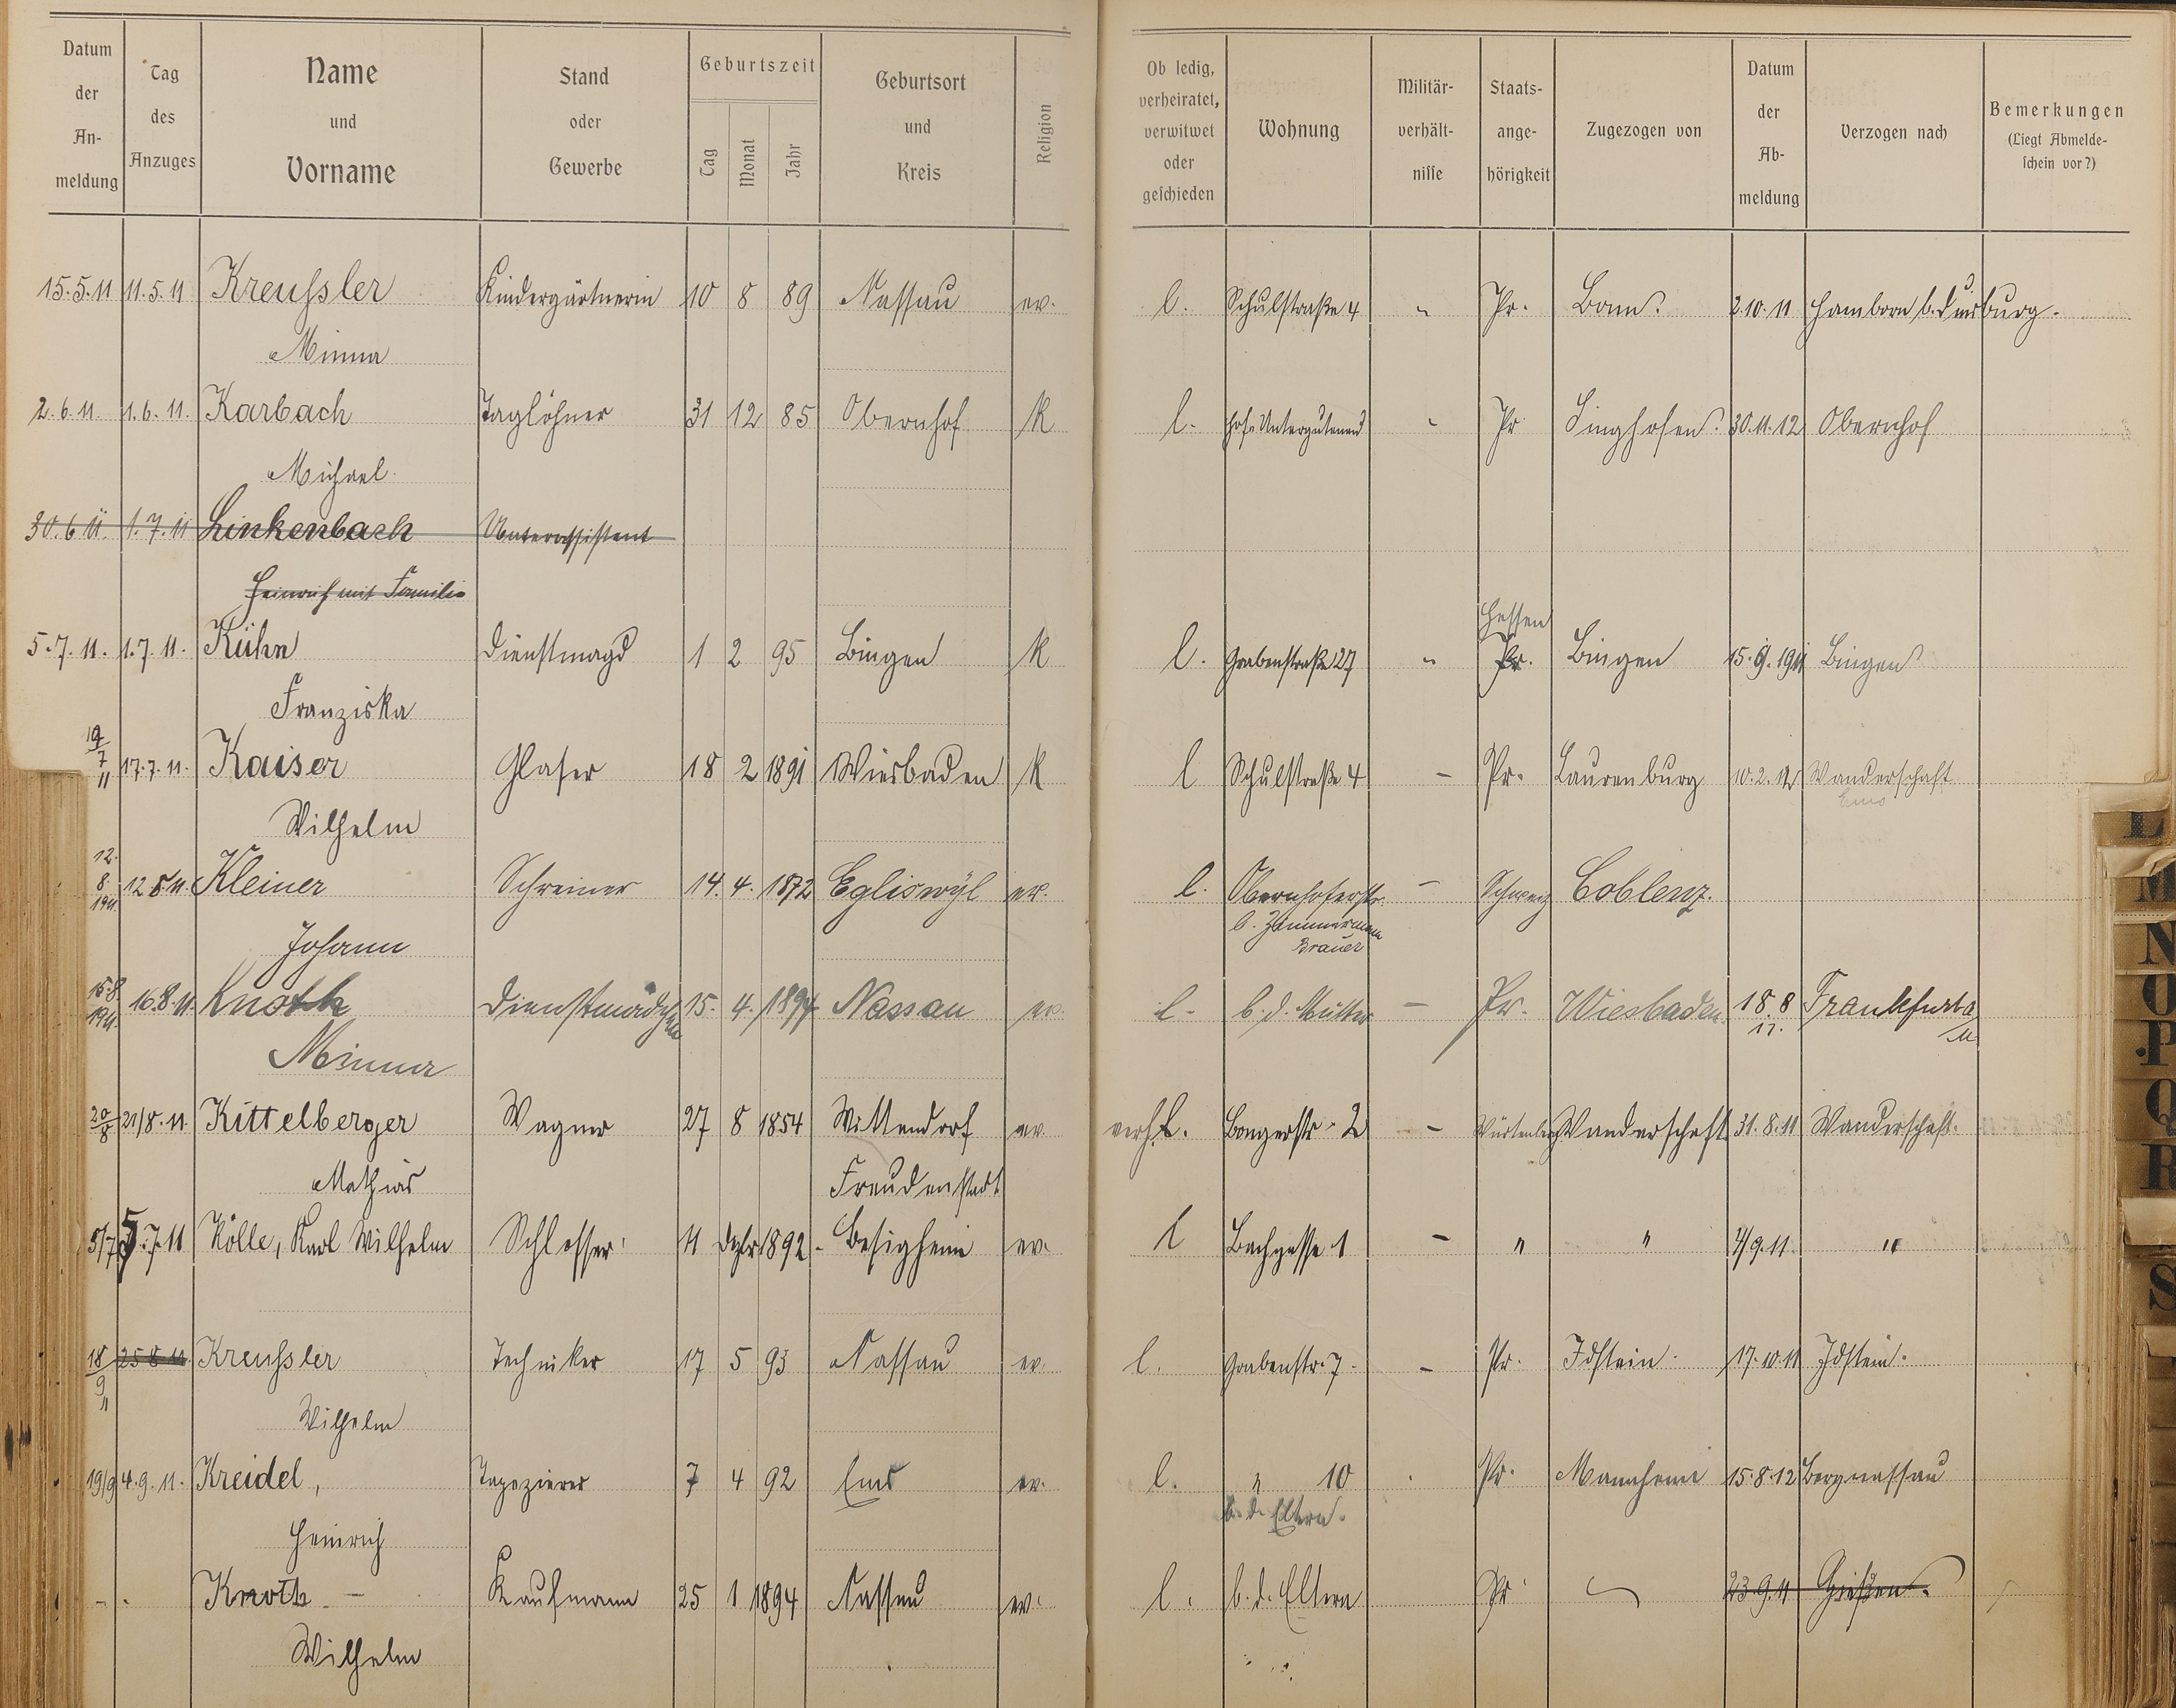 Datum der Anmeldung | Tag des Anzuges | Name und Vorname | Stand oder Gewerbe | Geburtszeit Tag Monat Jahr | Geburtsort und Kreis | Religion | Ob ledig, verheiratet, verwitwet oder geschieden | Wohnung | Militärverhältnisse | Staatsangehörigkeit | Zugezogen von | Datum der Abmeldung | Verzogen nach | Bemerkungen (Liegt Abmeldeschein vor?)
15.5.11 11.5.11 Kreussler Kindergärtnerin 10 8 89 Nassau ev. l. Schulstraße 4 " Pr. Bonn. 2.10.11 Hamborn b. Duisburg.
Minna
2.6.11. 1.6.11. Karbach Taglöhner 31 12 85 Obernhof K l. Pr Singhofen. 30.11.12 Obernhof
Michael
30.6.11. 1.7.11 Linkenbach Unterassistent
Heinrich mit Familie
Hessen
5.7.11. 1.7.11. Kühn Dienstmagd 1 2 95 Bingen K l. Grabenstraße 27 " Pr. Bingen 15.9.1911 Bingen
Franziska
19/7 11 17.7.11. Kaiser Glaser 18 2 1891 Wiesbaden K l Schulstraße 4 – Pr. Laurenburg 10.2.12 Wanderschaft
Ems
Wilhelm
12. 8 1911. 12 8 11. Kleiner Schreiner 14. 4. 1872 Egliswÿl ev. l. Obernhoferstr. – Schweiz Coblenz.
b. Zimmermann
Brauer
Johann
16.8. 1911. 16.8.11. Knoth Dienstmädchen 15. 4. 1894 Nassau ev. l. b. d. Mutter – Pr. Wiesbaden 18.8 11. Frankfurt a/M
Minna
20/8 21/8.11. Kittelberger Wagner 27 8 1854 Wittendorf ev. verh. l. Bongerstr. 2 – Würtenberg Wanderschaft 31.8.11 Wanderschaft.
Mathias Freudenstadt
5/7 5.7.11 Kölle, Karl Wilhelm Schlosser 11 Dzbr 1892. Besigheim ev. l Bachgasse 1 – " " 4/9.11. "
18/9 11 25 8 11. Kreussler Techniker 17 5 93 Nassau ev. l. Grabenstr. 7. – Pr. Idstein. 17.10.11 Idstein.
Wilhelm
19/9 4.9.11. Kreidel, Tapezierer 7 4 92 Ems ev. l. " 10 Pr. Mannheim 15.8.12 Bergnassau
b. d. Eltern.
Heinrich
- . Knoth – Kaufmann 25 1 1894 Nassau ev. l. b. d. Eltern Pr 23.9.11 Gießen.
Wilhelm
L
M
N
O
P
Q
R
S